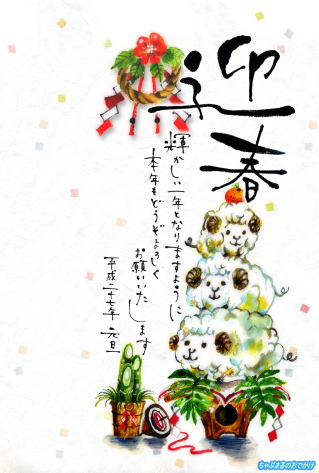 迎春
輝かしい一年となりますように
本年もどうぞよろしく
お願いいたします
平成二十七年 元旦
ちゃぷまるのおでかけ